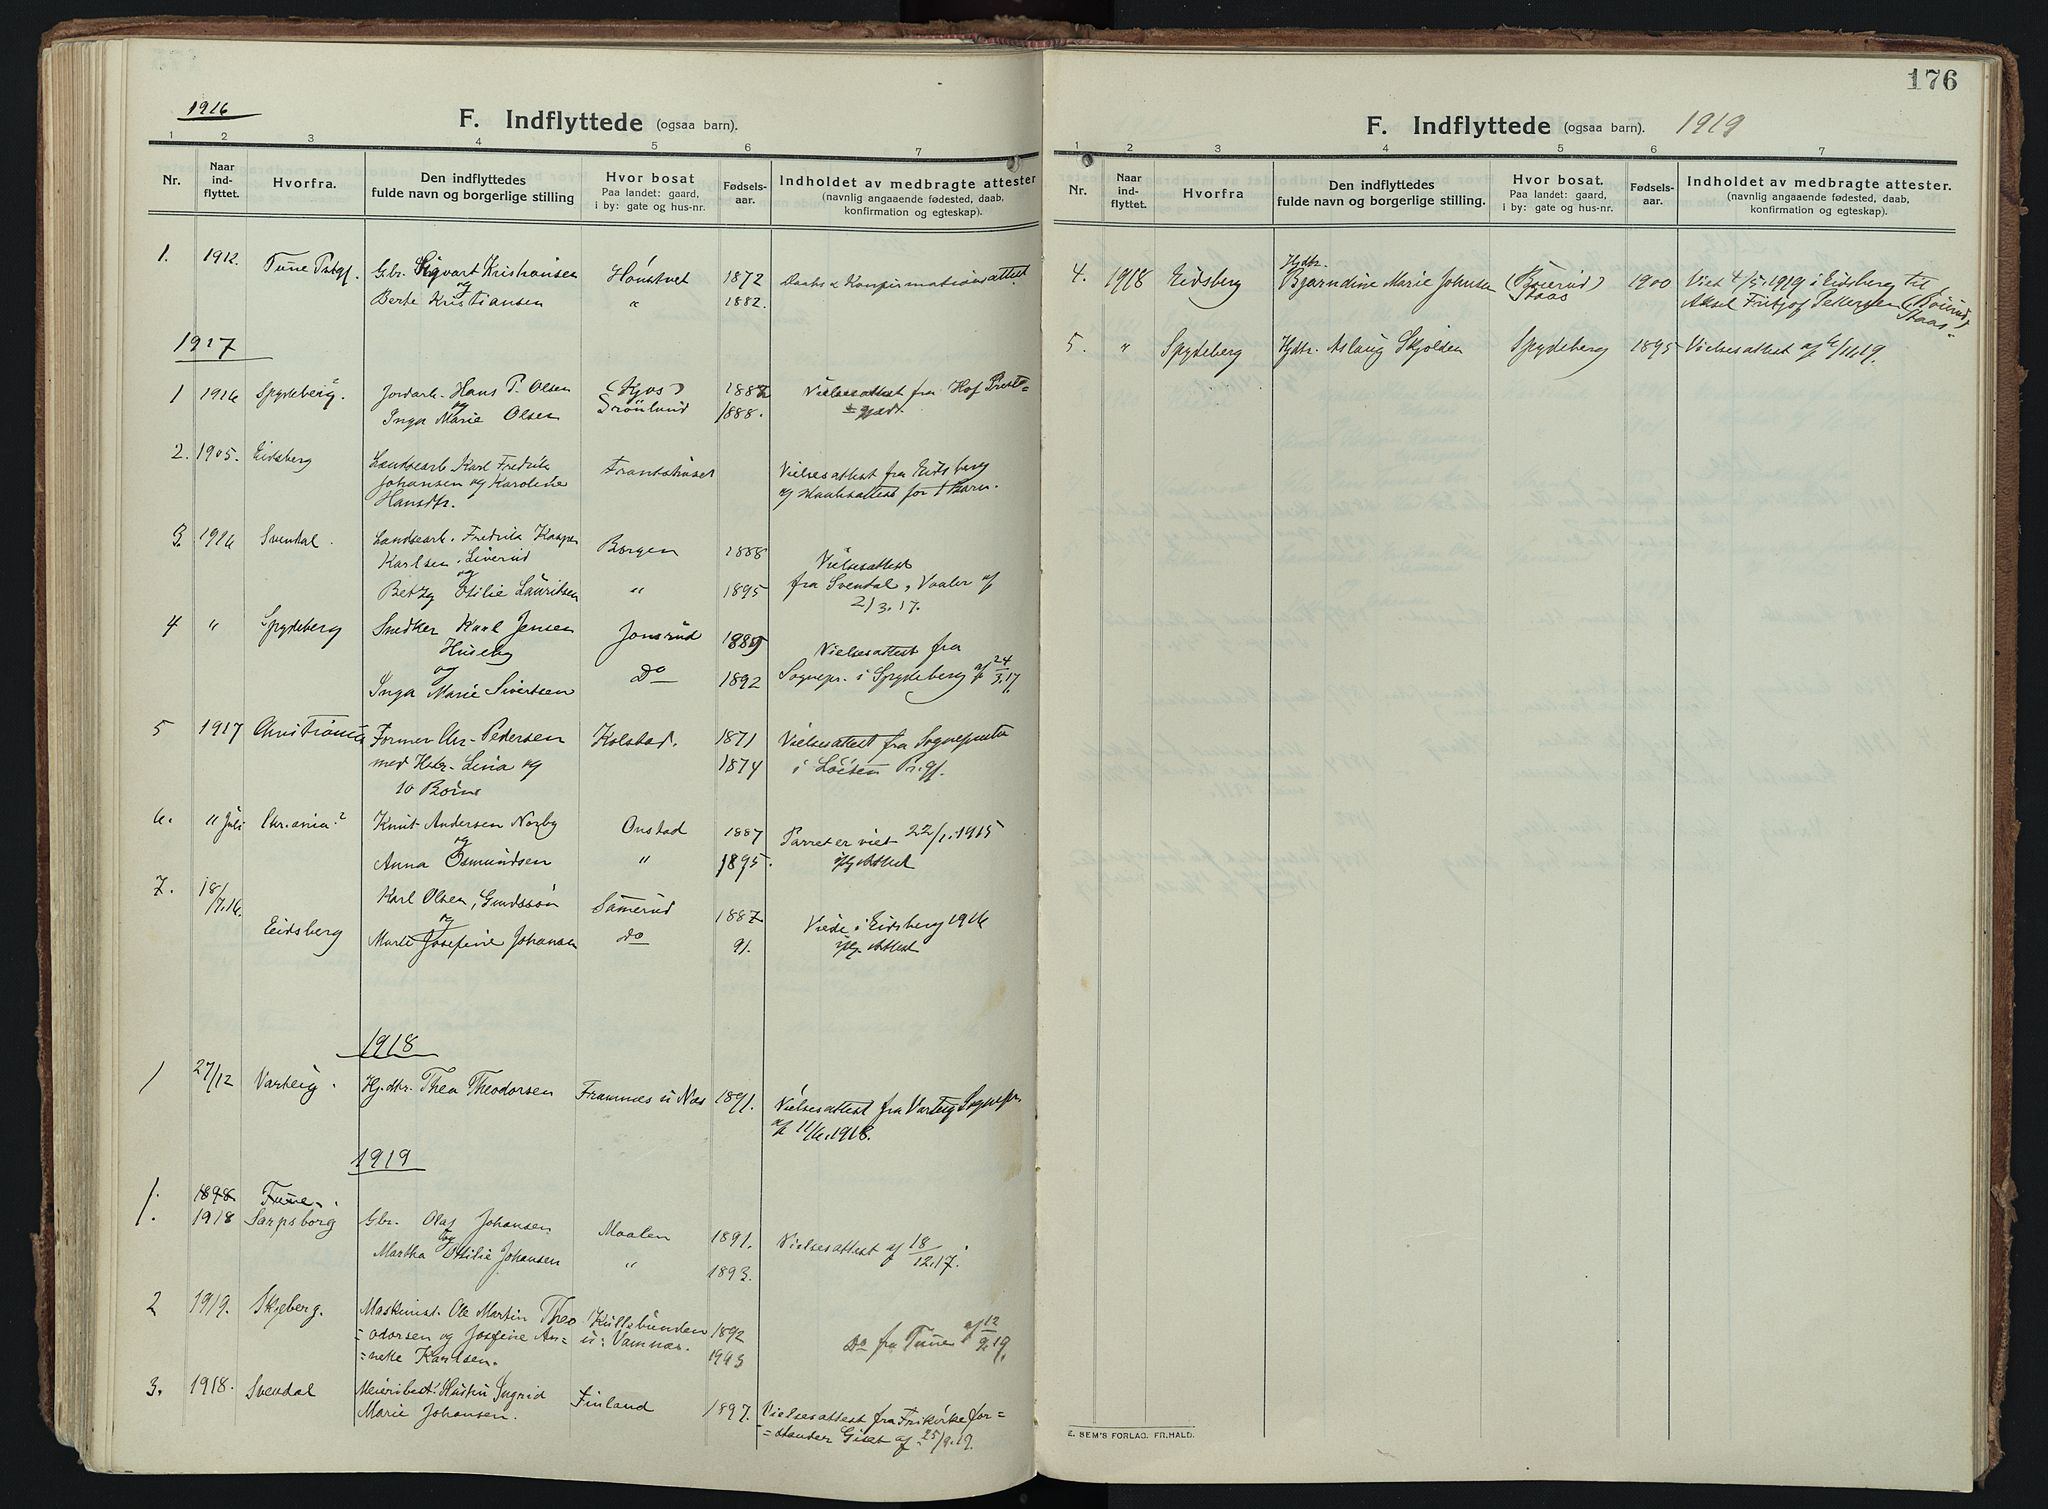 1916
F. Indflyttede (ogsaa barn).
1 2 3 4 5 6 7
Nr. Naar ind-flyttet. Hvorfra. Den indflyttedes fulde navn og borgerlige stilling Hvor bosat Paa landet: gaard, i by: gate og hus-nr. Fødsels-aar. Indholdet av medbragte attester (navnlig angaaende fødested, daab, konfirmation og egteskap).
1. 1912. Tune Prtgj. Gbr. Sigvart Kristiansen Haustvet 1872 Daabs & Konfirmationsattest.
og
Berte Kristiansen " 1882.
1917
1 1916 Spydeberg? Jordarb. Hans P. Olsen (Kjos) 1887 Vielsesattest fra Hof Preste=
og
Inga Marie Olsen Grönlund 1888. =gjæld.
2. 1905. Eidsberg Landsearb. Karl Fredrik Frantshuset Vielsesattest fra Eidsberg
Johansen og Karoline og Daabsattest for 1 Barn.
Hansdtr.
3. 1916 Svendal. Landsearb. Fredrik Kasper Borgen 1888 Vielsesattest
Karlsen Liverud
og fra Svendal, Vaaler af
Betzy Otilie Lauritsen " 1895 2/3.17.
4 " Spydeberg Snedker Karl Jensen Jonsrud 1889 Vielsesattest fra
Huseby
og
Inga Marie Sivertsen Do 1892 Sognepr. i Spydeberg af 24/3.17.
5 1917 Christiania Former Chr. Pedersen Kolstad. 1871 Vielsesattest fra Sognepresten
med Hstr. Lina og 1874 i Löiten Pr.gj.
10 Börn
6. " Juli Chr.ania? Knut Andersen Norby Onstad 1887 Parret er viet 22/1.1915
og
Anna Osmundsen " 1895. iflg. Attest
7. 18/7.16. Karl Olsen, Gudssön Sämerud 1887
Eidsberg og Viede i Eidsberg 1916
Marte Josefine Johansen Do 91. iflg. Attest
1918
1 27/12 Varteig. Hj.dtr. Thea Theodorsen Framnæs u Næs 1891. Vielsesattest fra Varteig Sognepr.
af 11/6.1918.
1919
1. 1898 Tune.
1918 Sarpsborg Gbr. Olaf Johansen Maalen 1891. Vielsesattest af 18/12.17.
og
Martha Otilie Johansen " 1893.
2 1919. Skjeberg. Maskinist. Ole Martin Theo Kullebunden 1892 Do fra Tune af 12/9.19.
=odorsen og Josefine An= u. Vamnæs. 1993
=neke Karlsen.
3. 1918. Svendal Meieribest. Hustru Ingrid Finland 1897. Vielsesattest fra Frikirkefor=
Marie Johansen. =stander Giset af 25/9.19.
176
F. Indflyttede (ogsaa barn). 1919
1 2 3 4 5 6 7
Nr. Naar ind-flyttet. Hvorfra Den indflyttedes fulde navn og borgerlige stilling. Hvor bosat. Paa landet: gaard, i by: gate og hus-nr. Fødsels-aar. Indholdet av medbragte attester. (navnlig angaaende fødested, daab, konfirmation og egteskap).
4. 1918 Eidsberg Hjdtr. Bjarndine Marie Johnsen (Böierud) Staas 1900 Viet 4/5.1919 i Eidsberg til
Aksel Fritjof Pettersen (Böierud) Staas.
5. " Spydeberg Hjdtr. Aslaug Skjolden Spydeberg 1895 Vielsesattest af 6/11.19.
E. SEM'S FORLAG. FR.HALD.